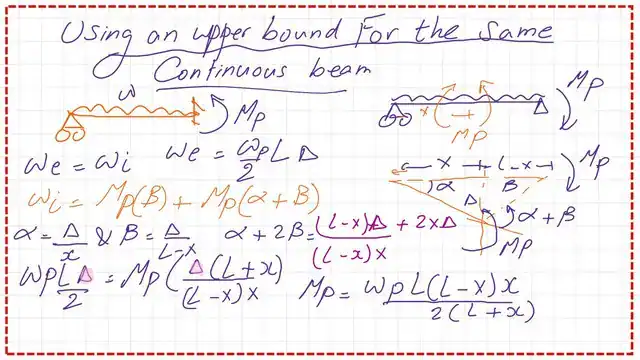 Using an upper bound For the Same
Continuous beam
w
Mp
x
Mp
Mp
We = Wi We = WpLΔ/2
Wi = Mp(B) + Mp(α+B)
x L-x
α B
Mp
Δ
α+B
Mp
α = Δ/x & B = Δ/L-x α+2B = (L-x)Δ + 2xΔ/(L-x)x
WpLΔ/2 = Mp(Δ(L+x)/(L-x)x)
Mp = WpL(L-x)x/2(L+x)